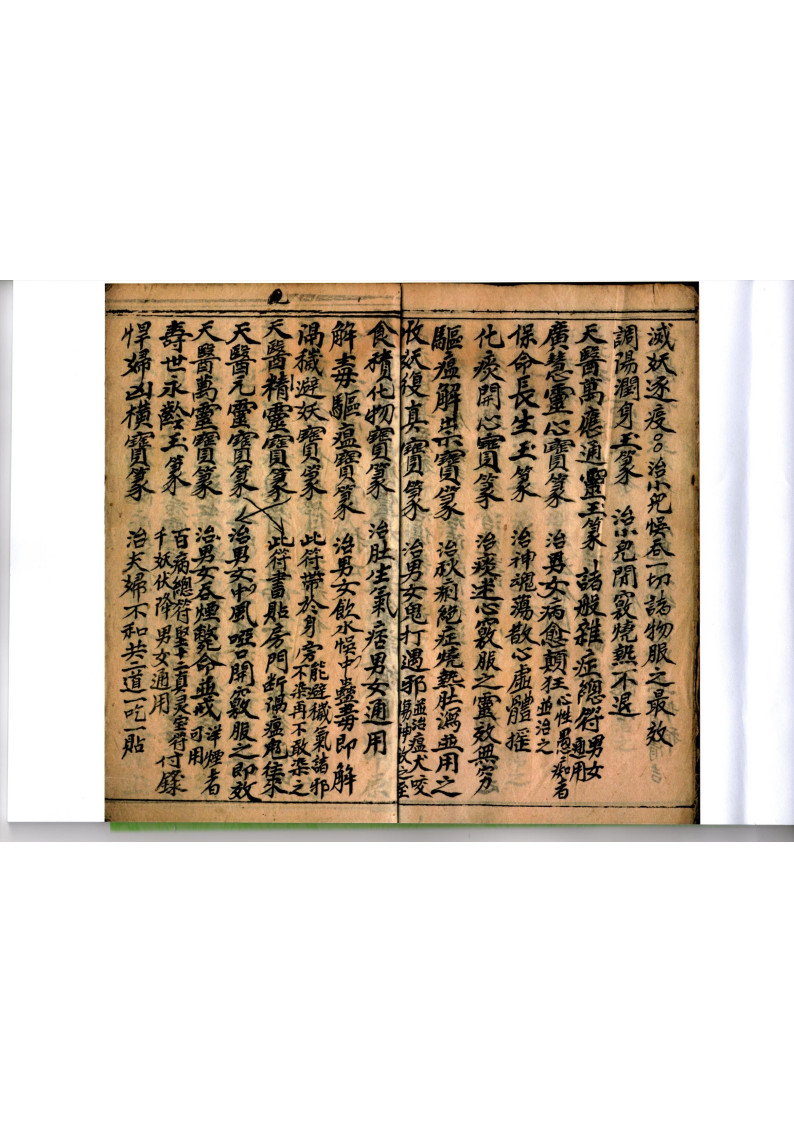 滅妖逐疫〇〇治小兒悞吞一切誌物服之最效
調陽潤身玉篆 治小兒閉竅燒熱不退
天醫萬應通靈玉篆 諸般雜症總符男女通用
廣慧靈心寶篆 治男女病愈顛狂心性愚痴者並治之
保命長生玉篆 治神魂蕩散心虛體摧
化痰開心寶篆 治痰迷心竅服之靈效無窮
驅瘟解祟寶篆 治秋痢絶症燒熱肚瀉並用之
收妖復真寶篆 治男女鬼打遇邪並治瘟犬咬傷神效之至
食積化物寶篆 治肚生氣痞男女通用
解毒驅瘟寶篆 治男女飲水悞中蠱毒即解
穢避妖寶篆 此符帶於身旁能避穢氣諸邪不染再不敢染之
天醫精靈寶篆 此符書貼房門断禍瘟鬼往來
天醫元靈寶篆 治男女中風啞口開竅服之即效
天醫萬靈寶篆 治男女吞煙斃命並戒洋煙者可用
壽世永齡玉篆 百病總符堅真灵宝符付籙千妖伏降男女通用
悍婦凶橫寶篆 治夫婦不和共二道一吃一貼